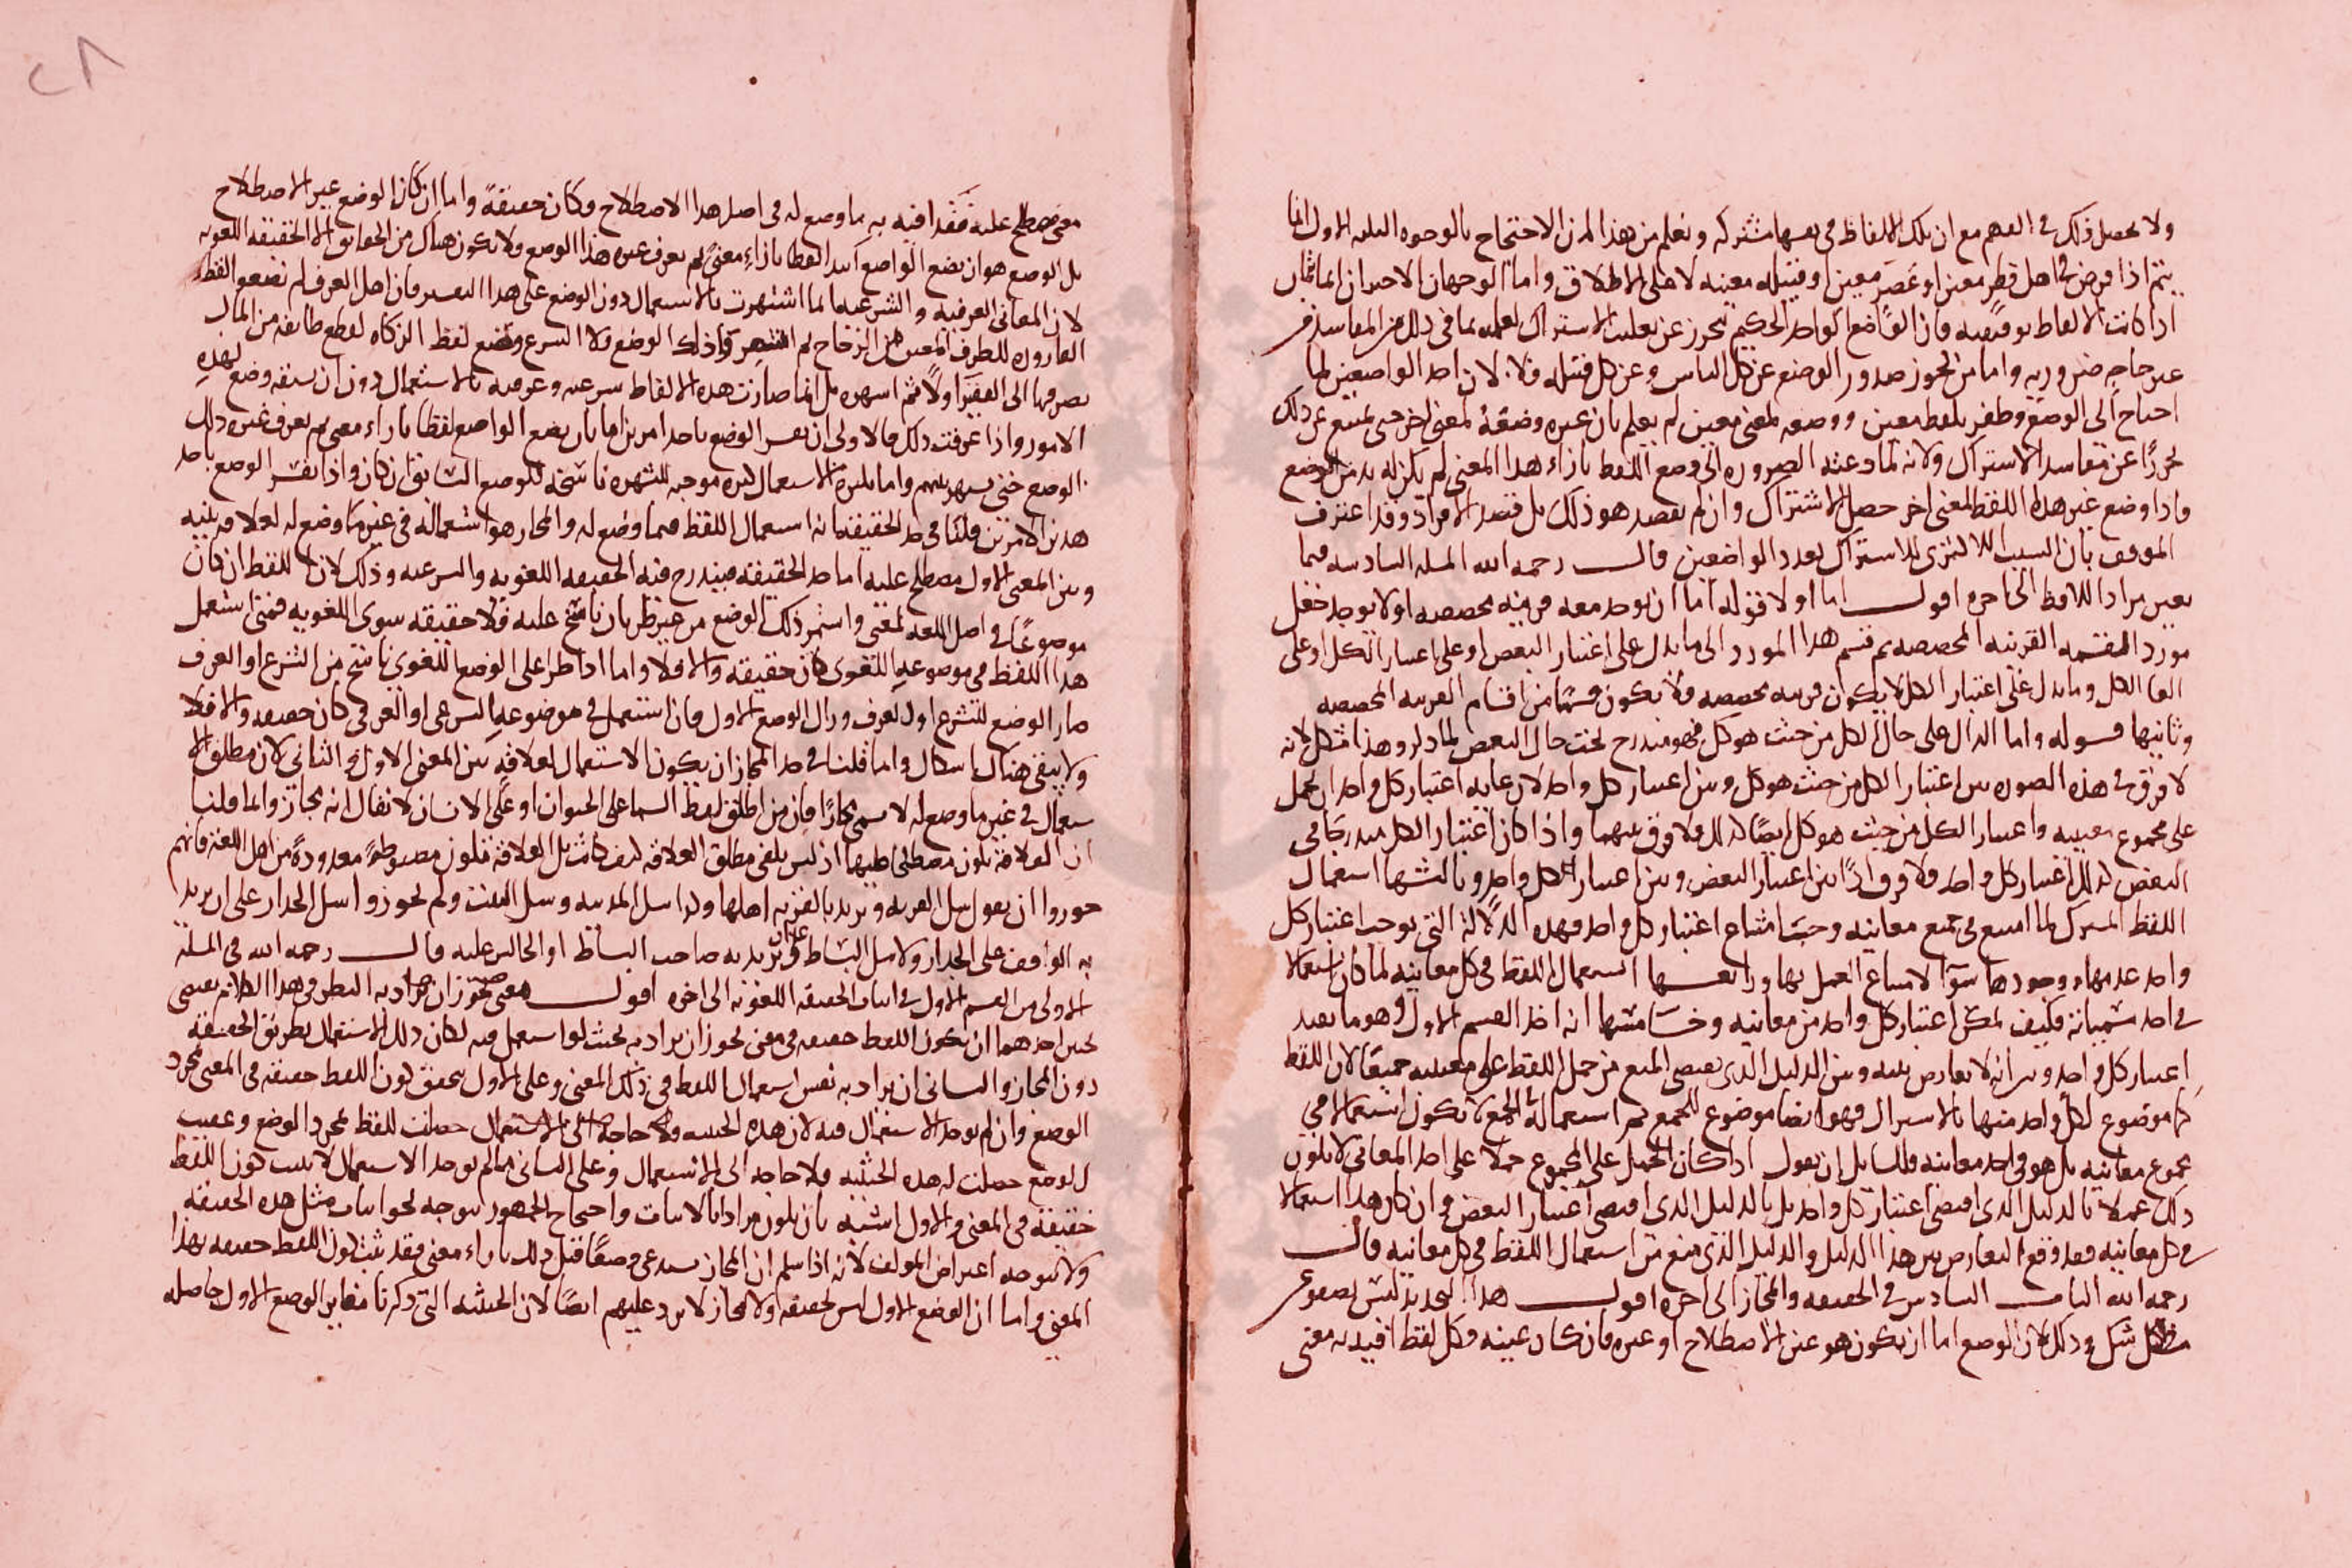 ولا يحصل ذلك في الفهم مع ان تلك الالفاظ في نفسها مشتركه ونعلم من هذا ان الاحتجاج بالوجوه الثلثه الاول انما
يتم اذا فرض في اهل قطر معين او عصر معين او قبيله معينه لا على الاطلاق واما الوجهان الاخيران انما
اذا كانت الالفاظ توقيفيه فان الواضع الواحد الحكيم يتحرز عن الاشتراك لعلمه بما في ذلك من المفاسد من
غير حاجه ضروريه واما من يجوز صدور الوضع عن كل الناس وعن كل قبيله فلا لان احد الواضعين لما
احتاج الى الوضع وظفر بلفظ معين ووضعه لمعنى معين لم يعلم بان غيره وضعه لمعنى اخر حتى يمتنع عن ذلك
تحرزا عن مفاسد الاشتراك ولانه لما دعته الضروره الى وضع اللفظ بازاء هذا المعنى لم يكن له بد من الوضع
فاذا وضع غيره هذا اللفظ لمعنى اخر حصل الاشتراك وان لم يقصد هو ذلك بل قصد الافراد وقد اعترف
المولف بان السبب الاكثري للاشتراك تعدد الواضعين قال رحمه الله المسله السادسه فيما
يعين مراد اللافظ الى اخره اقول اما اولا فقوله اما ان يوجد معه قرينه مخصصه او لا يوجد فجعل
مورد القسمه القرينه المخصصه ثم قسم هذا المورد الى ما يدل على اعتبار البعض او على اعتبار الكل او على
الغا الكل وما يدل على اعتبار الكل لا يكون قرينه مخصصه فلا يكون قسما من اقسام القرينه المخصصه
وثانيها قوله واما الدال على حال الكل من حيث هو كل فهو مندرج تحت حال البعض لما ذكر وهذا مشكل لانه
لا فرق في هذه الصوره بين اعتبار الكل من حيث هو كل وبين اعتبار كل واحد لان غايه اعتبار كل واحد ان يحمل
على مجموع معنييه واعتبار الكل من حيث هو كل ايضا كذلك فلا فرق بينهما واذا كان اعتبار الكل مندرجا في
البعض كذلك اعتبار كل واحد فلا فرق اذا بين اعتبار البعض وبين اعتبار الكل واحد وثالثها استعمال
اللفظ المشترك لما امتنع في جميع معانيه وجب امتناع اعتبار كل واحد فهذه الدلالة التي توجب اعتبار كل
واحد عدمها ووجودها سوآ لامتناع العمل بها ورابعها استعمال اللفظ في كل معانيه لما كان استعمالا
في احد مسمياته فكيف يمكن اعتبار كل واحد من معانيه وخامسها انه اخذ القسم الاول وهو ما يفيد
اعتبار كل واحد وبين انه لا تعارض بينه وبين الدليل الذي يقتضي المنع من حمل اللفظ على معنييه جميعا لان اللفظ
كما موضوع لكل واحد منها بالاشتراك فهو ايضا موضوع للجميع ثم استعماله في الجمع لا يكون استعمالا في
مجموع معانيه بل هو في احد معانيه فلقائل ان يقول اذا كان الحمل على المجموع حملا على احد المعاني لا يكون
ذلك عملا بالدليل الذي اقتضى اعتبار كل واحد بل بالدليل الذي اقتضى اعتبار البعض وان كان هذا استعمالا
في كل معانيه فقد وقع التعارض بين هذا الدليل والدليل الذي منع من استعمال اللفظ في كل معانيه قال
رحمه الله الباب السادس في الحقيقه والمجاز الى اخره اقول هذا التحديد ليس يصفو عن
مشكل وذلك لان الوضع اما ان يكون هو عين الاصطلاح او غيره فان كان عينه فكل لفظ افيد به معنى
معنى مصطلح عليه فقد افيد به ما وضع له في اصل هذا الاصطلاح وكان حقيقة واما ان كان الوضع غير الاصطلاح
بل الوضع هو ان يضع الواضع ابتدا لفظا بازاء معنى لم يعرف غيره هذا الوضع ولا يكون هناك من الحقايق الا الحقيقه اللغويه
لان المعاني العرفيه والشرعيه انما اشتهرت بالاستعمال دون الوضع على هذا التفسير فان اهل العرف لم يضعوا لفظ
القاروره للظرف المعين من الزجاج ثم اشتهر ذلك الوضع ولا الشرع وضع لفظ الزكاه لقطع طايفه من المال
يصرفها الى الفقير اولا ثم اشهره بل انما صارت هذه الالفاظ شرعيه وعرفيه بالاستعمال دون ان سبقه وضع لهذه
الامور واذا عرفت ذلك فالاولى ان يفسر الوضع باحد امرين اما بان يضع الواضع لفظا بازاء معنى لم يعرف غيره ذلك
الوضع حتى يشهر بينهم واما بكثرة الاستعمال كثره موجبه للشهره ناسخة للوضع السابق ان كان واذا فسر الوضع باحد
هذين الامرين قلنا في حد الحقيقه انه استعمال اللفظ فيما وضع له والمجاز هو استعماله في غير ما وضع له لعلاقه بينه
وبين المعنى الاول مصطلح عليه اما حد الحقيقه فيندرج فيه الحقيقه اللغويه والشرعيه وذلك لان اللفظ ان كان
موضوعا في اصل اللغه لمعنى واستمر ذلك الوضع من غير طريان ناسخ عليه فلا حقيقه سوى اللغويه فمتى استعمل
هذا اللفظ في موضوعه اللغوي كان حقيقه والا فلا واما اذا طرا على الوضع اللغوي ناسخ من الشرع او العرف
صار الوضع للشرع او لعرف وزال الوضع الاول فان استعمل في موضوعه الشرعي او العرفي كان حقيقه والا فلا
ولا يبقى هناك اشكال واما قلنا في حد المجاز ان يكون الاستعمال لعلاقه بين المعنى الاول والثاني لان مطلق الا
ستعمال في غير ما وضع له لا يسمى مجازا فان من اطلق لفظ السما على الحيوان او على الانسان لا يقال انه مجاز وانما قلنا
ان العلاقه يكون مصطلحا عليها اذ ليس يكفي مطلق العلاقه كيف كانت بل العلاقه تكون مضبوطه معدوده من اهل اللغه فانهم
جوزوا ان يقول سل القريه ويريد بالقريه اهلها وكذا سل المدينه وسل البيت ولم يجوزوا سل الجدار على ان يريد
به الواقف على الجدار ولا سل البساط على ان يريد به صاحب البساط او الجالس عليه قال رحمه الله في المسله
الاولى من القسم الاول في اثبات الحقيقه اللغويه الى اخره اقول معنى يجوز ان يراد به النظر في هذا الكلام يقتضي
احدهما ان يكون اللفظ حقيقه في معنى يجوز ان يراد به بحيث لو استعمل فيه لكان ذلك الاستعمال بطريق الحقيقه
دون المجاز والثاني ان يراد به نفس استعمال اللفظ في ذلك المعنى وعلى الاول يتحقق كون اللفظ حقيقه في المعنى بمجرد
الوضع وان لم يوجد الاستعمال فيه لان هذه الحيثيه ولا حاجه الى الاستعمال حصلت للفظ بمجرد الوضع وعقيب
الوضع حصلت له هذه الحيثيه ولا حاجه الى الاستعمال وعلى الثاني ما لم يوجد الاستعمال لا يثبت كون اللفظ
حقيقه في المعنى والاول اشبه بان يكون مرادا بالاثبات واحتجاج الجمهور يتوجه نحو اثبات مثل هذه الحقيقه
ولا يتوجه اعتراض المولف لانه اذا سلم ان المجاز يستدعي وضعا قبل ذلك بازاء معنى فقد ثبت كون اللفظ حقيقه بهذا
المعنى واما ان الوضع الاول ليس بحقيقه ولا مجاز لا يرد عليهم ايضا لان الحيثيه التي ذكرنا مقابل الوضع الاول حاصله
٢٨